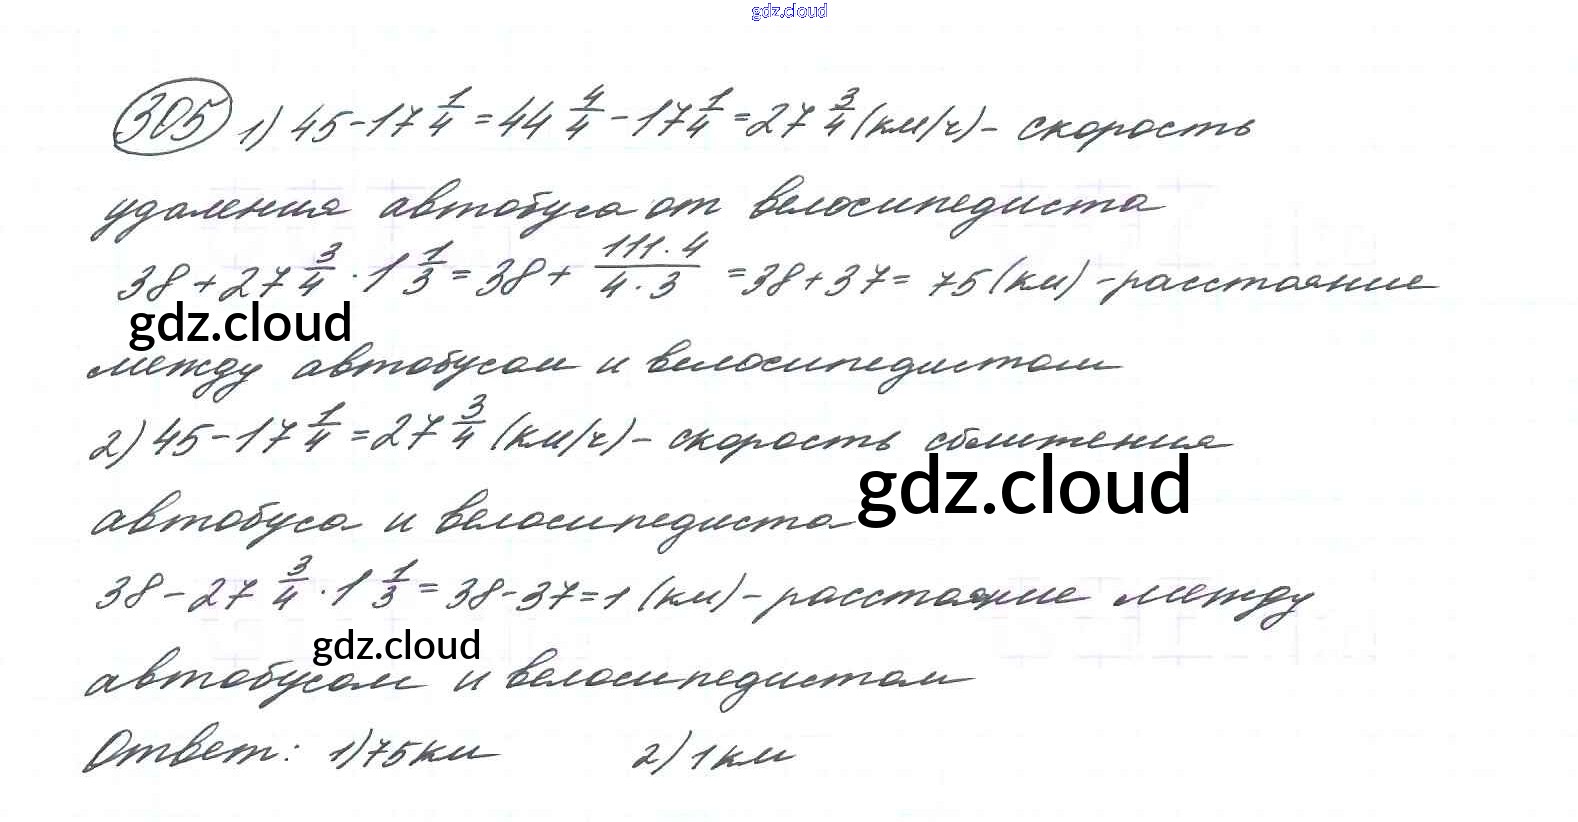 gdz.cloud
305 1) 45 - 17 1/4 = 44 4/4 - 17 1/4 = 27 3/4 (км/ч) - скорость
удаления автобуса от велосипедиста
38 + 27 3/4 · 1 1/3 = 38 + 111·4/4·3 = 38 + 37 = 75 (км) - расстояние
gdz.cloud
между автобусом и велосипедистом
2) 45 - 17 1/4 = 27 3/4 (км/ч) - скорость сближения
gdz.cloud
автобуса и велосипедиста
38 - 27 3/4 · 1 1/3 = 38 - 37 = 1 (км) - расстояние между
gdz.cloud
автобусом и велосипедистом
Ответ: 1) 75 км 2) 1 км